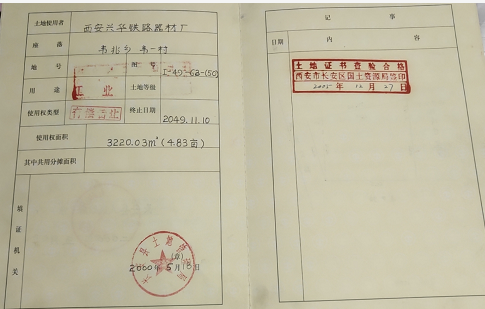 土地使用者 西安兴华铁路器材厂
座落 韦北乡 韦一村
地号 图号 I-49-62-(50)
用途 工业 土地等级
使用权类型 终止日期 2049.11.10
使用权面积 3220.03m²(4.83亩)
其中共用分摊面积
填证机关
长县土地局
2000年5月10日
(章)
记事
日期 内容
土地证书查验合格
西安市长安区国土资源局签印
2005年12月27日